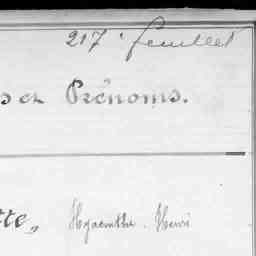 217. feuillet
s et Prénoms.
tte, Hyacinthe Henri